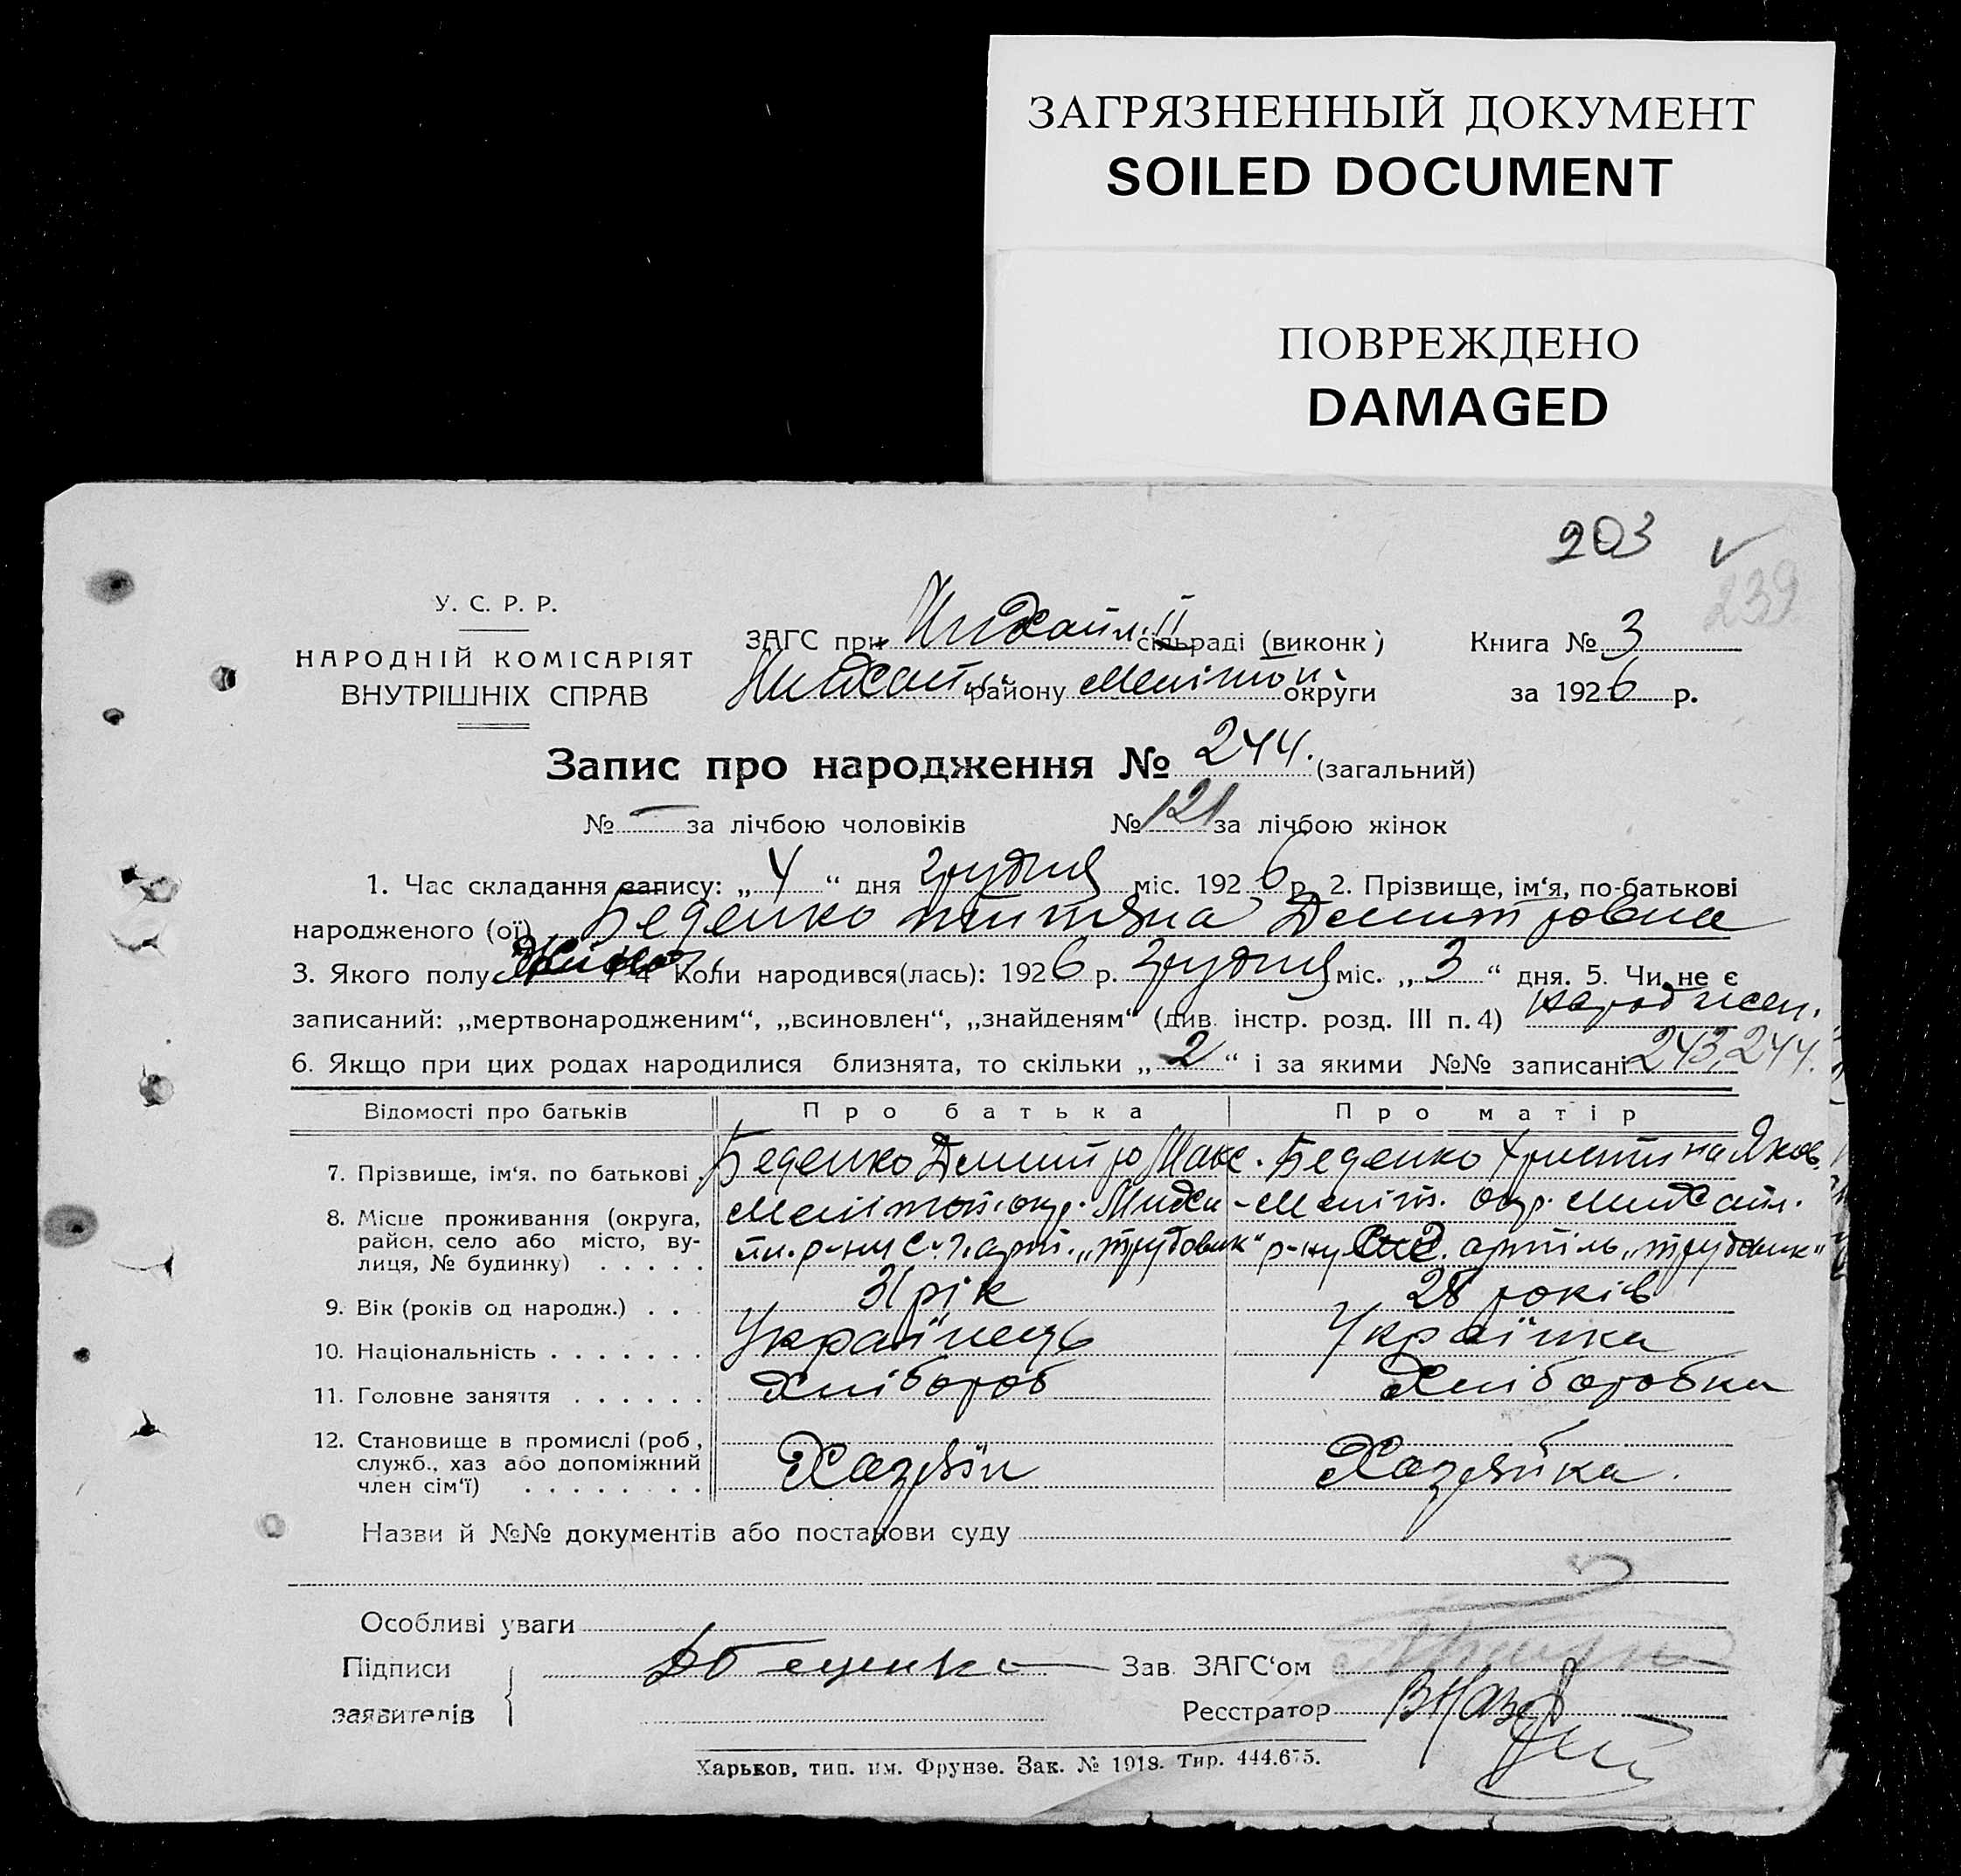 ЗАГРЯЗНЕННЫЙ ДОКУМЕНТ
SOILED DOCUMENT
ПОВРЕЖДЕНО
DAMAGED
203
239
У. С. Р. Р.
НАРОДНІЙ КОМІСАРІЯТ
ВНУТРІШНІХ СПРАВ
ЗАГС при Михайл. ІІ сільраді (виконк) Книга № 3
Михайл. району Мелітоп. округи за 1926 р.
Запис про народження № 244. (загальний)
№ — за лічбою чоловіків № 121 за лічбою жінок
1. Час складання запису: „4“ дня грудня міс. 1926 р. 2. Прізвище, ім‘я, по-батькові
народженого (ої) Беденко Титяна Демитровна
3. Якого полу Жіноч. 4 Коли народився(лась): 1926 р. Грудня міс. „3“ дня. 5. Чи не є
записаний: „мертвонародженим“, „всиновлен“, „знайденям“ (див. інстр. розд. III п. 4) народжен.
6. Якщо при цих родах народилися близнята, то скільки „2“ і за якими №№ записані 243, 244.
Відомості про батьків Про батька Про матір
7. Прізвище, ім‘я, по батькові Беденко Демитро Макс. Беденко Христина Яков.
8. Місце проживання (округа, район, село або місто, вулиця, № будинку) Меліттоп. окр. Михайл. р-ну с. г. арт. „Трудовик“ Меліт. окр. Михайл. р-ну артіль „Трудовик“
9. Вік (років од народж.) 31 рік 28 років
10. Національність Українець Українка
11. Головне заняття Хлібороб Хліборобка
12. Становище в промислі (роб., служб., хаз або допоміжний член сім‘ї) Хазяїн Хазяйка.
Назви й №№ документів або постанови суду
Особливі уваги
Підписи заявителів Зав. ЗАГС‘ом
Реєстратор
Харьков, тип. им. Фрунзе. Зак. № 1918. Тир. 444.675.